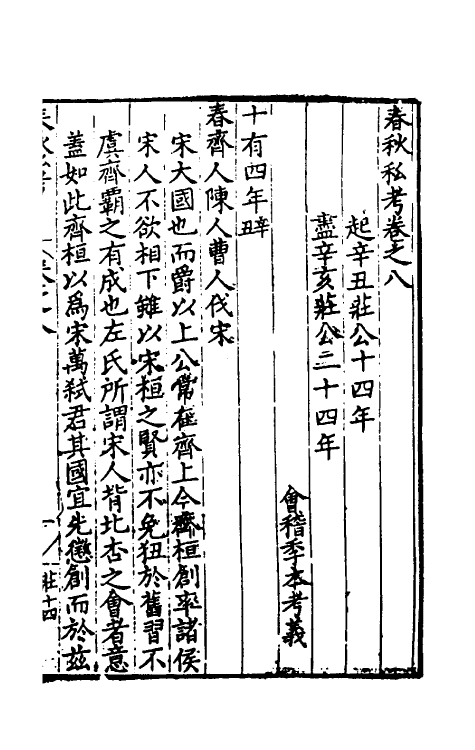 春秋私考卷之八
起辛丑莊公十四年
盡辛亥莊公二十四年
會稽季本考義
十有四年辛丑
春齊人陳人曹人伐宋
宋大國也而爵以上公常在齊上今齊桓創率諸侯
宋人不欲相下雖以宋桓之賢亦不免狃於舊習不
虞齊霸之有成也左氏所謂宋人背北杏之會者意
蓋如此齊桓以爲宋萬弒君其國宜先懲創而於茲
莊十四